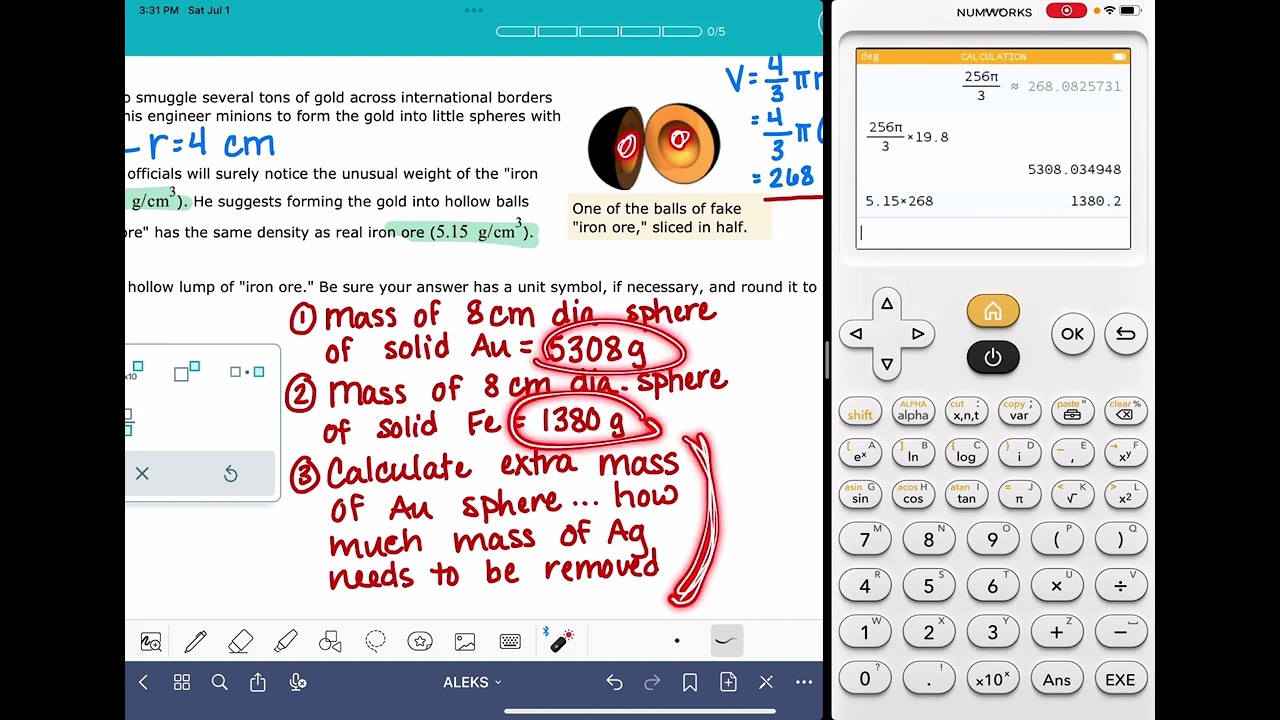 3:31 PM Sat Jul 1
0/5
smuggle several tons of gold across international borders
his engineer minions to form the gold into little spheres with
r=4 cm
officials will surely notice the unusual weight of the "iron
g/cm³). He suggests forming the gold into hollow balls
ore" has the same density as real iron ore (5.15 g/cm³).
V=4/3 π
=4/3 π(
=268
One of the balls of fake
"iron ore," sliced in half.
hollow lump of "iron ore." Be sure your answer has a unit symbol, if necessary, and round it to
① Mass of 8cm dia. sphere
of solid Au = 5308g
② Mass of 8cm dia. sphere
of solid Fe = 1380 g
③ Calculate extra mass
of Au sphere... how
much mass of Ag
needs to be removed
x10
ALEKS
NUMWORKS
deg CALCULATION
256π/3 ≈ 268.0825731
256π/3×19.8
5308.034948
5.15×268 1380.2
OK
shift ALPHA alpha cut x,n,t copy var paste clear
[ A eˣ ] B ln { C log } D i _ E , → F xʸ
asin G sin acos H cos atan I tan = J π < K √ > L x²
7 M 8 N 9 O ( P ) Q
4 R 5 S 6 T × U ÷ V
1 W 2 X 3 Y + Z −
0 ? . ! ×10ˣ Ans EXE